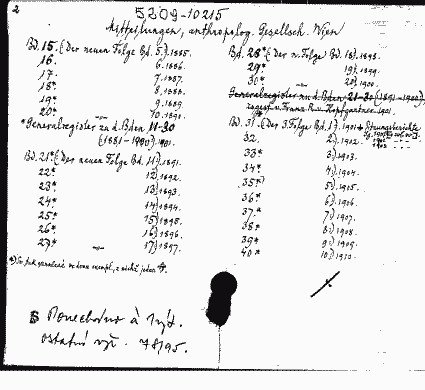 2
5209-10215
Mitteilungen, anthropolog. Gesellsch. Wien
Bd. 15. (Der neuen Folge Bd. 5.) 1885.
16. 6. 1886.
17. 7. 1887.
18* 8. 1888.
19* 9. 1889.
20* 10. 1890.
*Generalregister zu d. Bden 11-30
(1881-1900) 1901.
Bd. 21* (Der neuen Folge Bd. 11.) 1891.
22* 12.) 1892.
23* 13.) 1893.
24* 14.) 1894.
25* 15.) 1895.
26* 16.) 1896.
27* 17.) 1897.
Bd. 28* (Der n. Folge Bd. 18.) 1898.
29* 19.) 1899.
30* 20.) 1900.
Generalregister zu d. Bden 21-30 (1891-1900),
1901.
Bd. 31. (Der 3. Folge Bd. 1.) 1901 + Sitzungsberichte
32. 2.) 1902.
33* 3.) 1903.
34* 4.) 1904.
35* 5.) 1905.
36* 6.) 1906.
37* 7.) 1907.
38* 8.) 1908.
39* 9.) 1909.
40* 10.) 1910.
Ponechat à 1 výt.
ostatní vyř. 78/95.